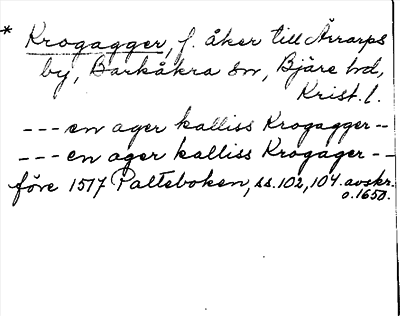 * Krogagger, f. åker till Ärrarps
by, Barkåkra sn, Bjäre hd,
Krist. l.
--- en ager kalliss Krogagger --
--- en ager kalliss Krogager --
före 1517 Palteboken, ss. 102, 104. avskr.
o. 1650.